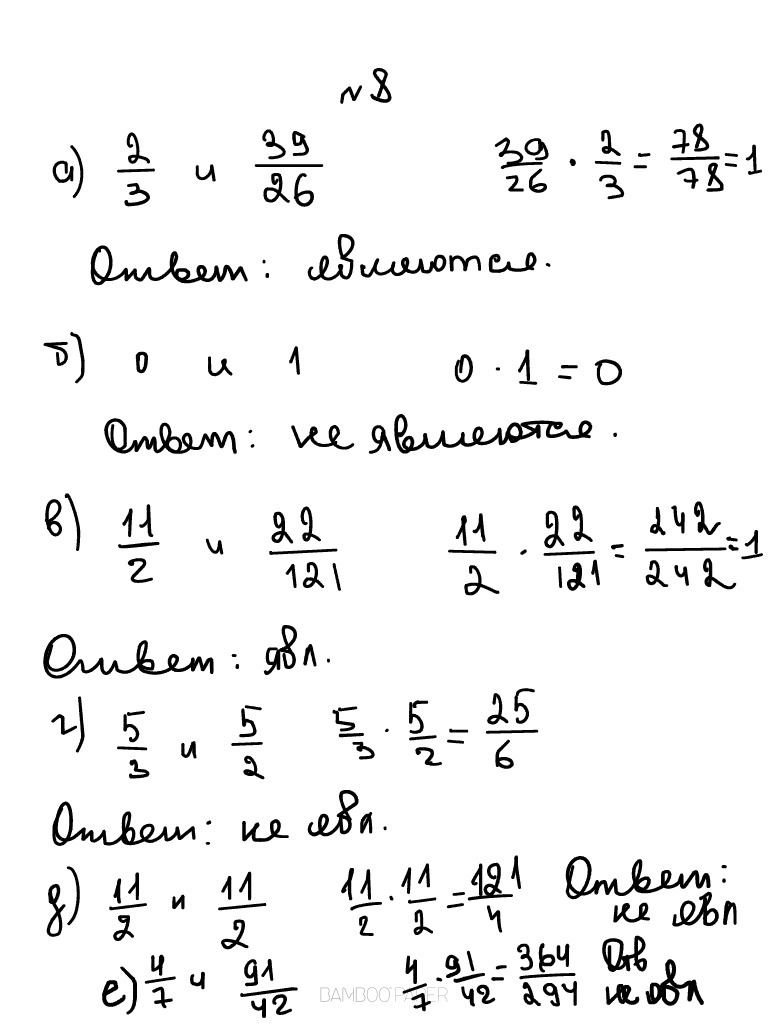 № 8
а) 2/3 и 39/26   39/26 · 2/3 = 78/78 = 1
Ответ: являются.
б) 0 и 1   0 · 1 = 0
Ответ: не являются.
в) 11/2 и 22/121   11/2 · 22/121 = 242/242 = 1
Ответ: явл.
г) 5/3 и 5/2   5/3 · 5/2 = 25/6
Ответ: не явл.
д) 11/2 и 11/2   11/2 · 11/2 = 121/4   Ответ: не явл
е) 4/7 и 91/42   4/7 · 91/42 = 364/294   Отв не явл
BAMBOO PAPER